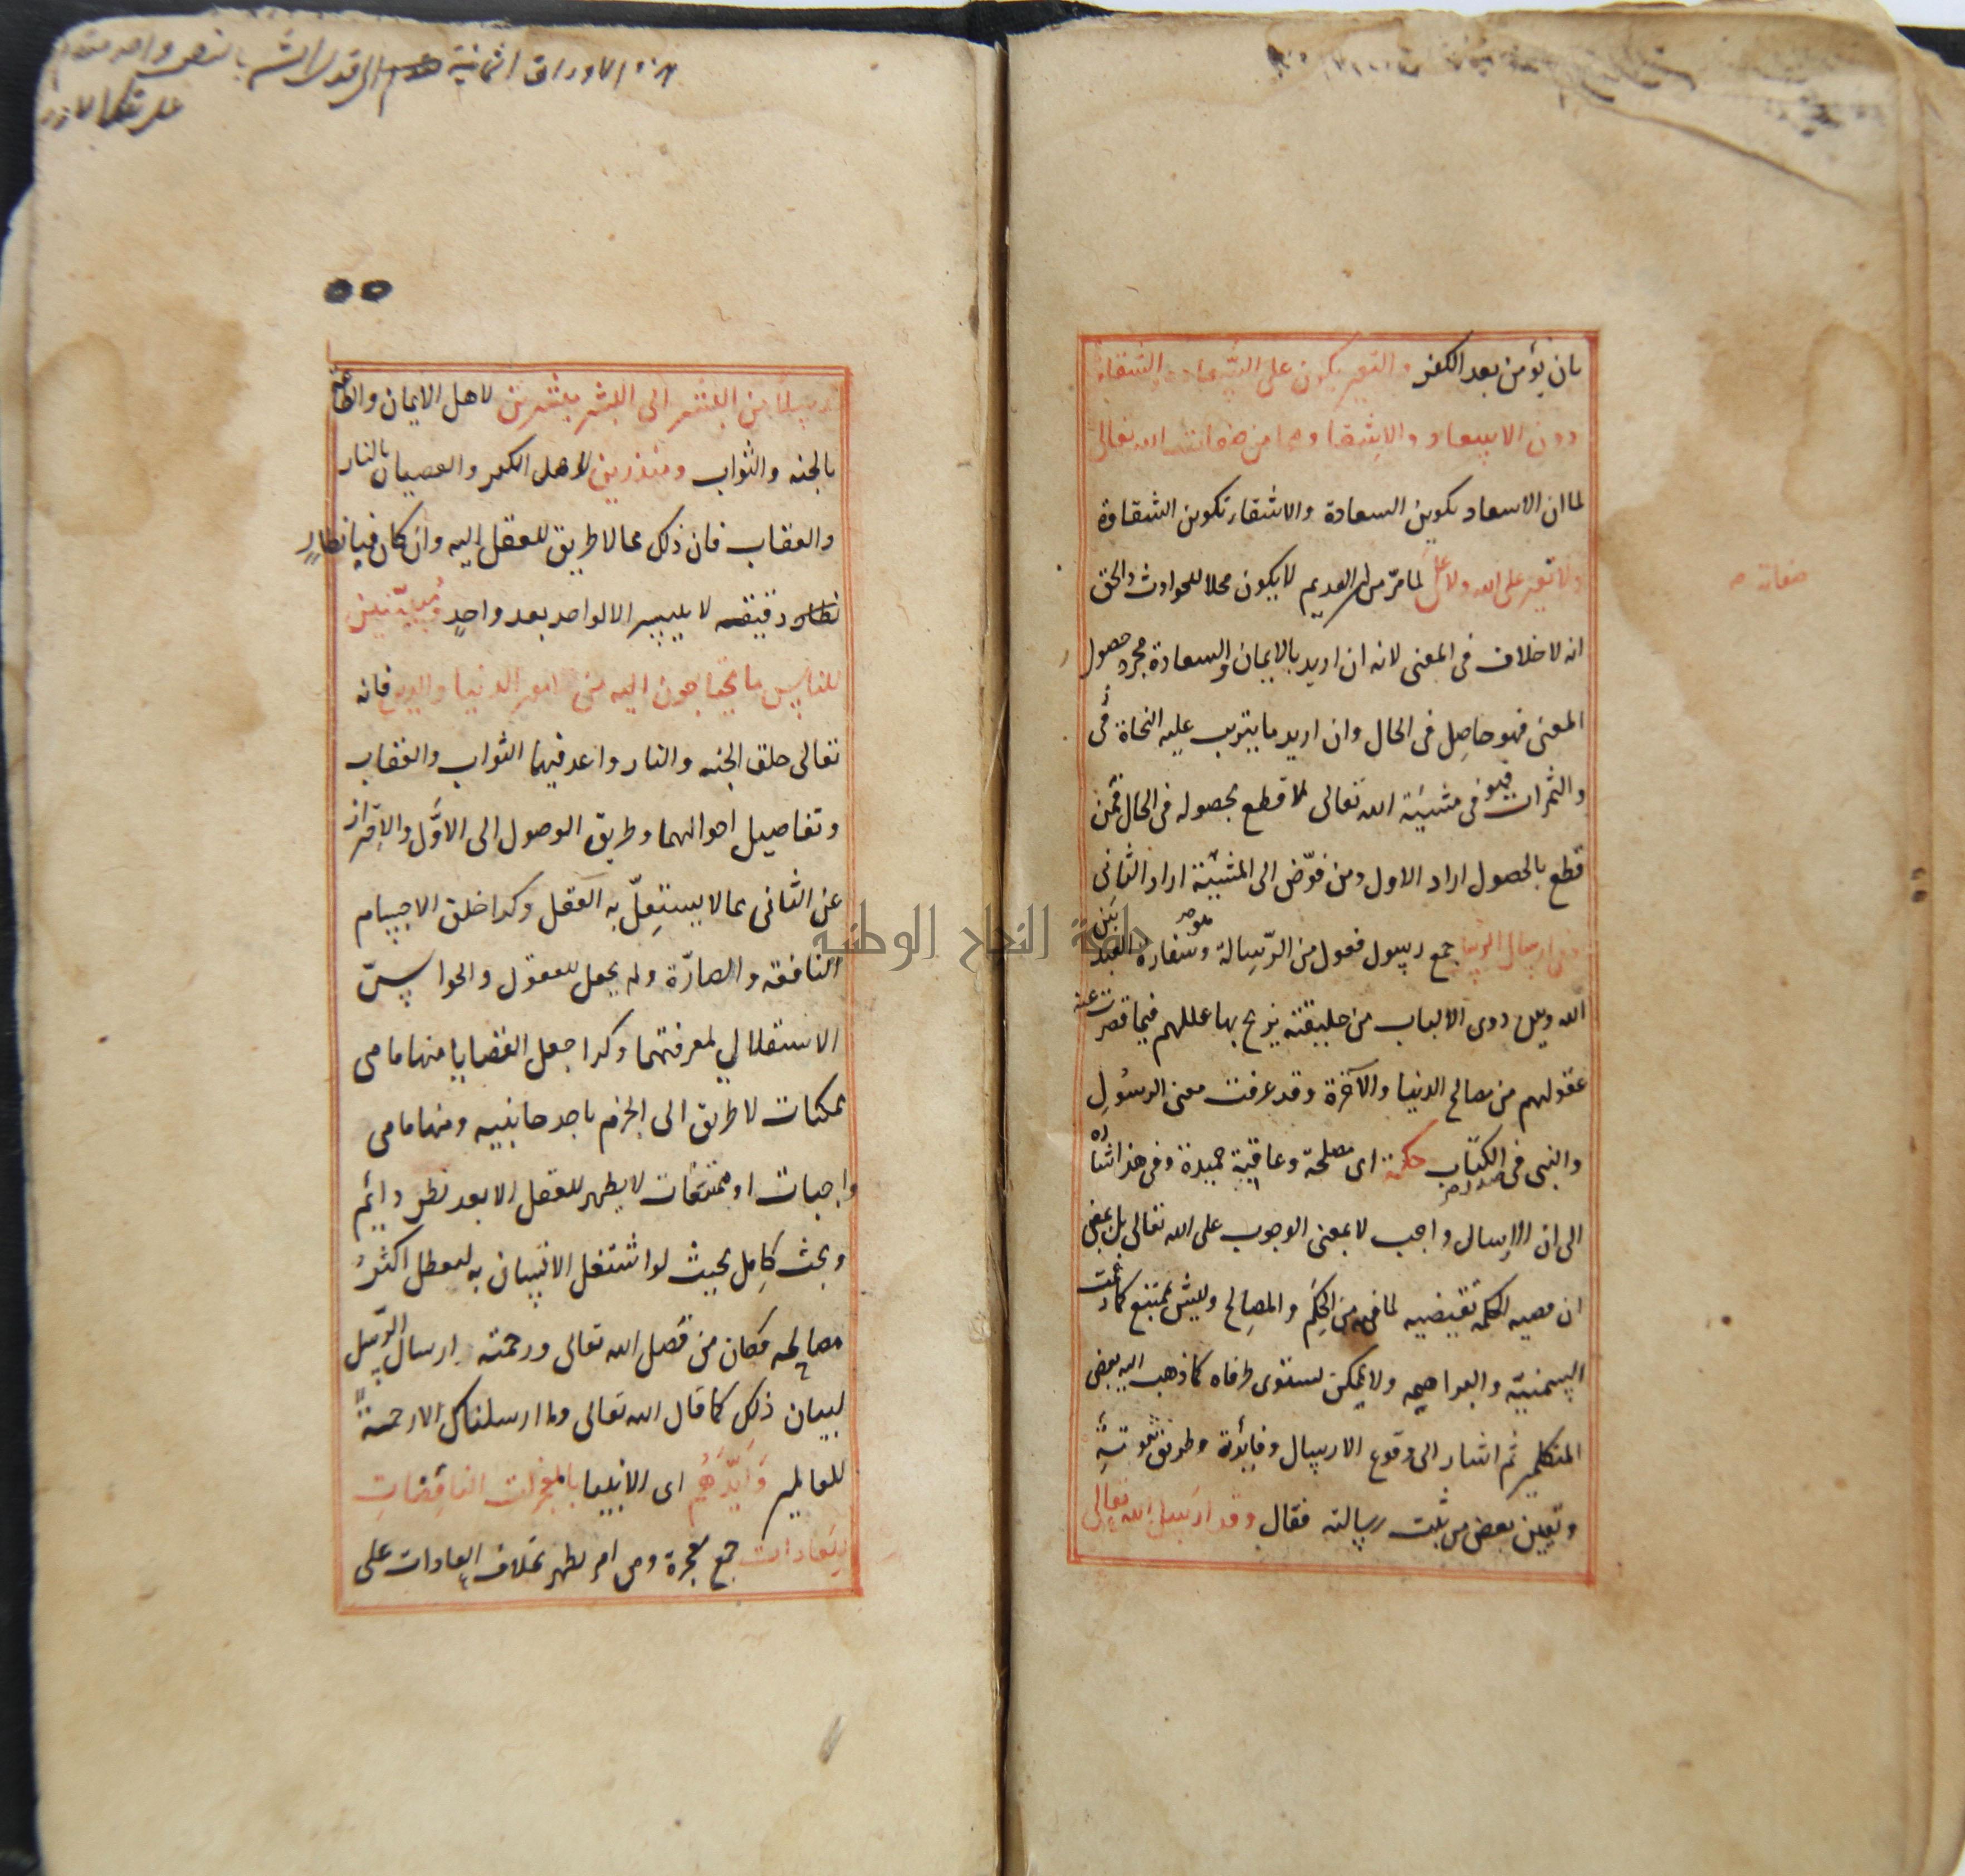 بان يؤمن بعد الكفر والتغير يكون على السعادة والشقاوة
دون الاسعاد والاشقا وهما من صفات الله تعالى
لما ان الاسعاد تكوين السعادة والاشقاء تكوين الشقاوة
ولا تغير على الله ولا على لما مرّ من ان القديم لا يكون محلا للحوادث والحق
صفاته
انه لا خلاف فى المعنى لانه ان اريد بالايمان والسعادة مجرد حصول
المعنى فهو حاصل فى الحال وان اريد ما يترتب عليه النجاة
والثمرات فهو فى مشيئة الله تعالى لا قطع بحصوله فى الحال فمن
قطع بالحصول اراد الاول ومن فوّض الى المشيئة اراد الثانى
وفى ارسال الرسل جمع رسول فعول من الرسالة وهو سفارة العبد بين
الله وبين ذوى الالباب من خليقته يزيح بها عللهم فيما قصرت عنه
عقولهم من مصالح الدنيا والآخرة وقد عرفت معنى الرسول
والنبى فى صدر الكتاب حكمة اى مصلحة وعاقبة حميدة وفى هذا اشارة
الى ان الارسال واجب لا بمعنى الوجوب على الله تعالى بل بمعنى
ان قضية الحكمة تقتضيه لما فيه من الحكم والمصالح وليس بممتنع كما زعمت
السمنية والبراهمة ولا بممكن يستوى طرفاه كما ذهب اليه بعض
المتكلمين ثم اشار الى وقوع الارسال وفايدته وطريق ثبوته
وتعيين بعض من ثبت رسالته فقال وقد ارسل الله تعالى
هذه الاوراق الثمانية
رسلا من البشر الى البشر مبشرين لاهل الايمان والطاعة
بالجنه والثواب ومنذرين لاهل الكفر والعصيان بالنار
والعقاب فان ذلك مما لا طريق للعقل اليه وان كان فبانظار
دقيقه لا يتيسر الا لواحد بعد واحد ومبيّنين
للناس ما يحتاجون اليه من امور الدنيا والدين فانه
تعالى خلق الجنه والنار واعد فيهما الثواب والعقاب
وتفاصيل احوالهما وطريق الوصول الى الاوّل والاحتراز
عن الثانى مما لا يستقلّ به العقل وكذا خلق الاجسام
النافعه والضارّة ولم يجعل للعقول والحواسّ
الاستقلال لمعرفتهما وكذا جعل القضايا منها ما هى
ممكنات لا طريق الى الجزم باحد جانبيه ومنها ما هى
واجبات او ممتنعات لا يظهر للعقل الا بعد نظر دائم
وبحث كامل بحيث لو اشتغل الانسان به لتعطل اكثر
مصالحه فكان من فضل الله تعالى ورحمته ارسال الرسل
لبيان ذلك كما قال الله تعالى وما ارسلناك الا رحمة
للعالمين وأيّدهم اى الانبيا بالمعجزات الناقضات
للعادات جمع معجزة وهى امر يظهر بخلاف العادات على
جامعة النجاح الوطنية